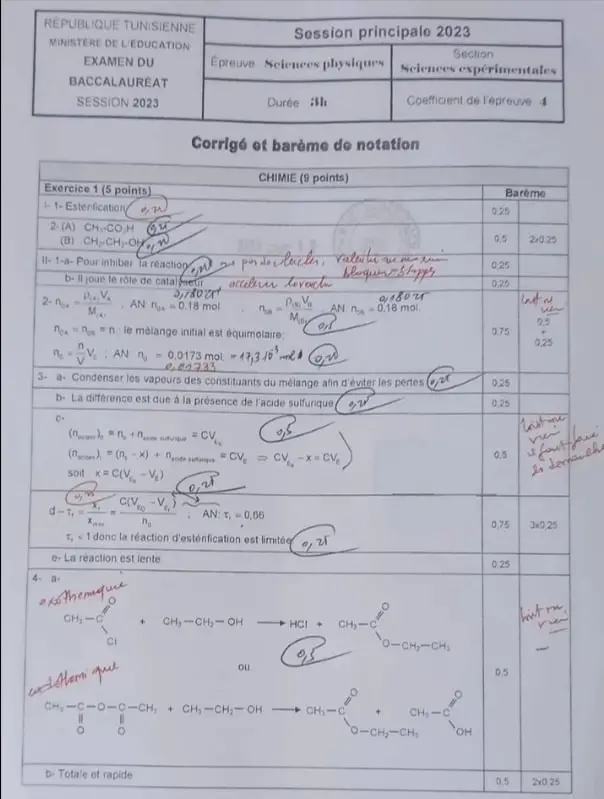 RÉPUBLIQUE TUNISIENNE
MINISTÈRE DE L'ÉDUCATION
EXAMEN DU
BACCALAURÉAT
SESSION 2023
Session principale 2023
Épreuve Sciences physiques
Section
Sciences expérimentales
Durée 3h
Coefficient de l'épreuve 4
Corrigé et barème de notation
CHIMIE (9 points)
Exercice 1 (5 points)
Barème
I- 1- Estérification 0,25
0,25
2- (A) CH₃-CO₂H 0,25
(B) CH₃-CH₂-OH
0,5
2x0,25
II- 1-a- Pour inhiber la réaction
bloquer = stopper
0,25
b- Il joue le rôle de catalyseur accélérer
0,25
0,18025 0,18025
2- n₀A = ρ(A).VA / M(A) , AN n₀A = 0.18 mol , n₀B = ρ(B).VB / M(B) AN n₀B = 0.18 mol.
n₀A = n₀B = n : le mélange initial est équimolaire; 0,5
n₀ = n/V V₀ ; AN n₀ = 0,0173 mol. = 17,3.10⁻³ mol
0,01733
0,75
0,5
+
0,25
3- a- Condenser les vapeurs des constituants du mélange afin d'éviter les pertes 0,25
0,25
b- La différence est due à la présence de l'acide sulfurique 0,25
0,25
c-
0,5
(n acides)₀ = n₀ + n acide sulfurique = CV E₀
(n acides)f = (n₀ - x) + n acide sulfurique = CVE ⇒ CV E₀ - x = CVE
soit x = C(V E₀ - VE) 0,25
0,5
tout ou
rien
d- τf = xf / xmax = C(V E₀ - VE) / n₀ , AN: τf = 0,66
τf < 1 donc la réaction d'estérification est limitée 0,25
0,75
3x0,25
e- La réaction est lente
0,25
4- a-
exothermique
CH₃-C O Cl + CH₃-CH₂-OH → HCl + CH₃-C O O-CH₂-CH₃
tout ou
rien
ou
0,5
0,5
CH₃-C-O-C-CH₃ + CH₃-CH₂-OH → CH₃-C O O-CH₂-CH₃ + CH₃-C O OH
O O
b- Totale et rapide
0,5
2x0,25